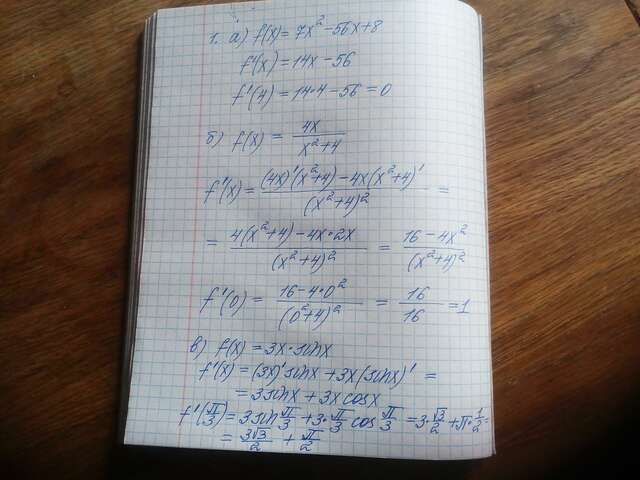 1. а) f(x) = 7x² - 56x + 8
f'(x) = 14x - 56
f'(4) = 14·4 - 56 = 0
б) f(x) = 4x / (x² + 4)
f'(x) = ((4x)'(x²+4) - 4x(x²+4)') / (x²+4)² =
= (4(x²+4) - 4x·2x) / (x²+4)² = (16 - 4x²) / (x²+4)²
f'(0) = (16 - 4·0²) / (0²+4)² = 16/16 = 1
в) f(x) = 3x·sinx
f'(x) = (3x)'sinx + 3x(sinx)' =
= 3sinx + 3xcosx
f'(π/3) = 3sin π/3 + 3·π/3 cos π/3 = 3·√3/2 + π·1/2 =
= 3√3/2 + π/2